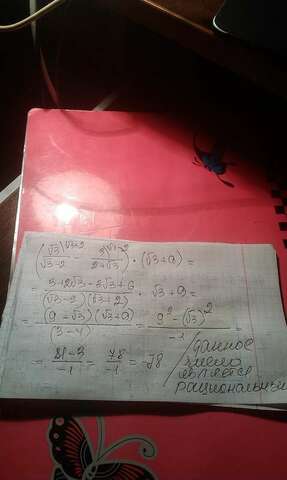 (√3)^(√3+2 / √3-2 - 3^(√3-2 / 2+√3) · (√3+9) =
= 3+2√3-3√3+6 / (√3-2)(√3+2) · √3+9 =
= (9-√3)(√3+9) / (3-4) = 9²-(√3)² / -1
= 81-3 / -1 = 78 / -1 = -78 / данное
число
является
рациональным